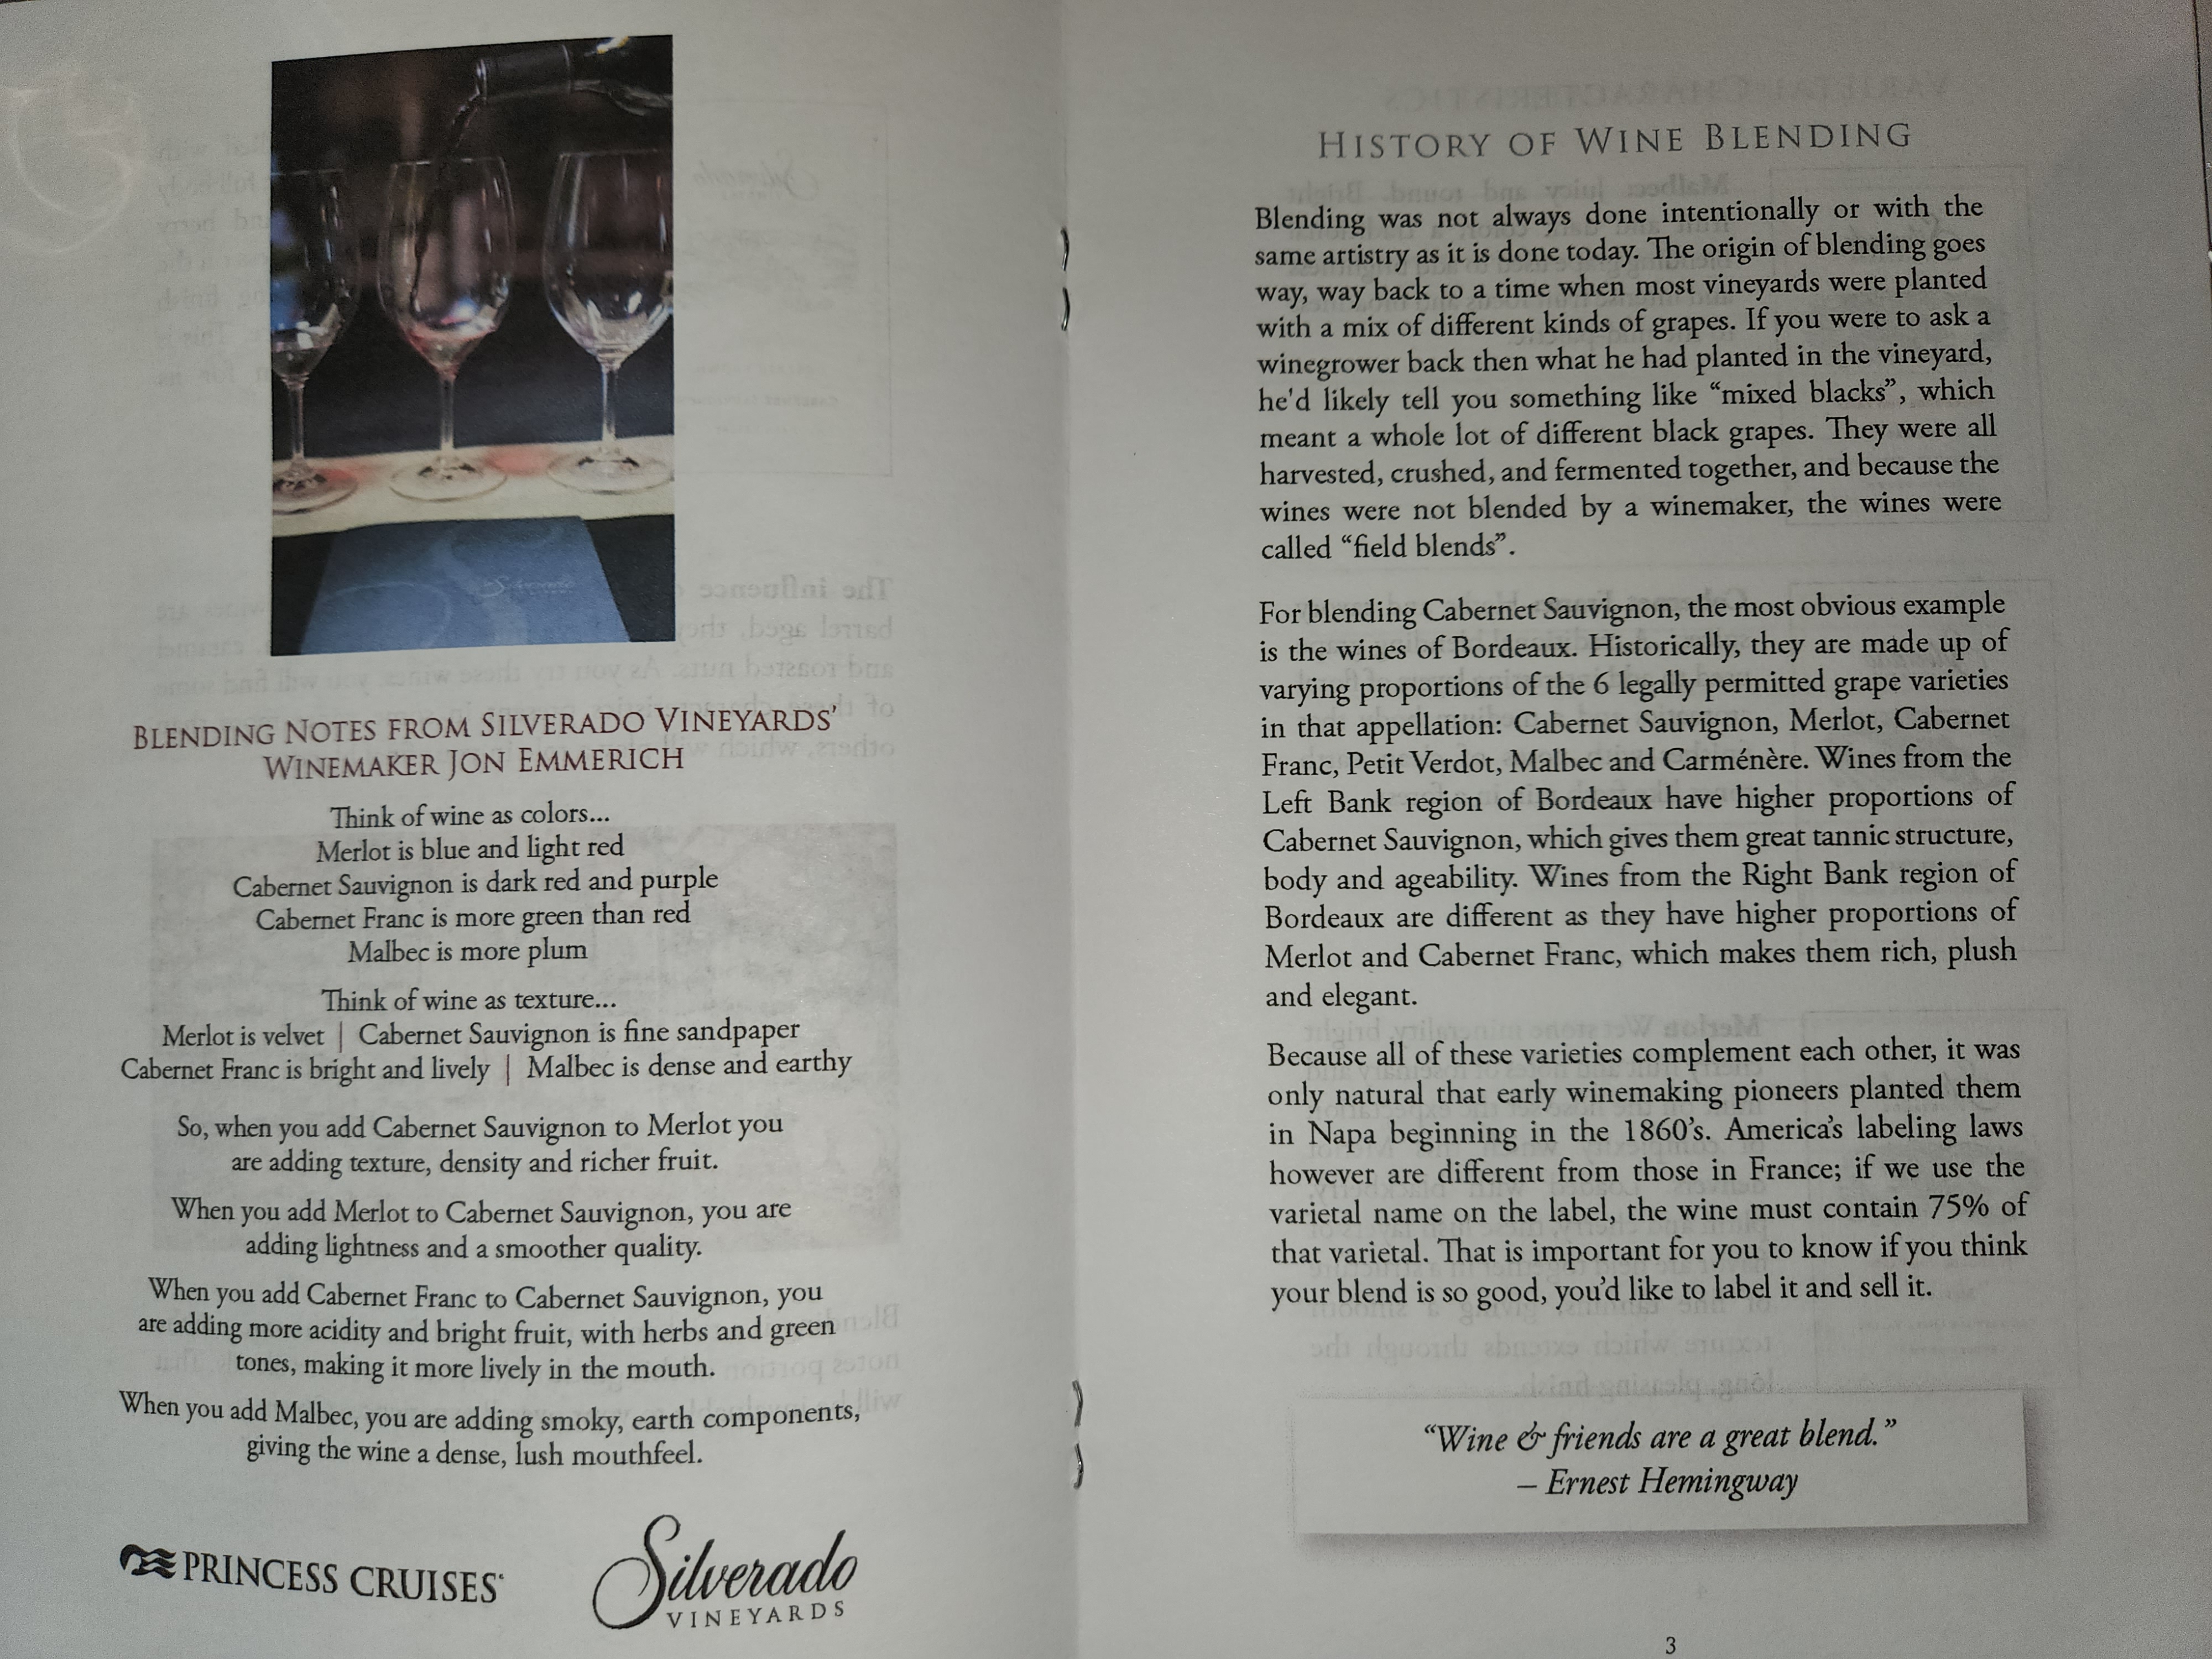 Silverado
BLENDING NOTES FROM SILVERADO VINEYARDS'
WINEMAKER JON EMMERICH
Think of wine as colors...
Merlot is blue and light red
Cabernet Sauvignon is dark red and purple
Cabernet Franc is more green than red
Malbec is more plum
Think of wine as texture...
Merlot is velvet | Cabernet Sauvignon is fine sandpaper
Cabernet Franc is bright and lively | Malbec is dense and earthy
So, when you add Cabernet Sauvignon to Merlot you
are adding texture, density and richer fruit.
When you add Merlot to Cabernet Sauvignon, you are
adding lightness and a smoother quality.
When you add Cabernet Franc to Cabernet Sauvignon, you
are adding more acidity and bright fruit, with herbs and green
tones, making it more lively in the mouth.
When you add Malbec, you are adding smoky, earth components,
giving the wine a dense, lush mouthfeel.
PRINCESS CRUISES
Silverado
VINEYARDS
HISTORY OF WINE BLENDING
Blending was not always done intentionally or with the
same artistry as it is done today. The origin of blending goes
way, way back to a time when most vineyards were planted
with a mix of different kinds of grapes. If you were to ask a
winegrower back then what he had planted in the vineyard,
he'd likely tell you something like “mixed blacks”, which
meant a whole lot of different black grapes. They were all
harvested, crushed, and fermented together, and because the
wines were not blended by a winemaker, the wines were
called “field blends”.
For blending Cabernet Sauvignon, the most obvious example
is the wines of Bordeaux. Historically, they are made up of
varying proportions of the 6 legally permitted grape varieties
in that appellation: Cabernet Sauvignon, Merlot, Cabernet
Franc, Petit Verdot, Malbec and Carménère. Wines from the
Left Bank region of Bordeaux have higher proportions of
Cabernet Sauvignon, which gives them great tannic structure,
body and ageability. Wines from the Right Bank region of
Bordeaux are different as they have higher proportions of
Merlot and Cabernet Franc, which makes them rich, plush
and elegant.
Because all of these varieties complement each other, it was
only natural that early winemaking pioneers planted them
in Napa beginning in the 1860's. America's labeling laws
however are different from those in France; if we use the
varietal name on the label, the wine must contain 75% of
that varietal. That is important for you to know if you think
your blend is so good, you'd like to label it and sell it.
“Wine & friends are a great blend.”
– Ernest Hemingway
3